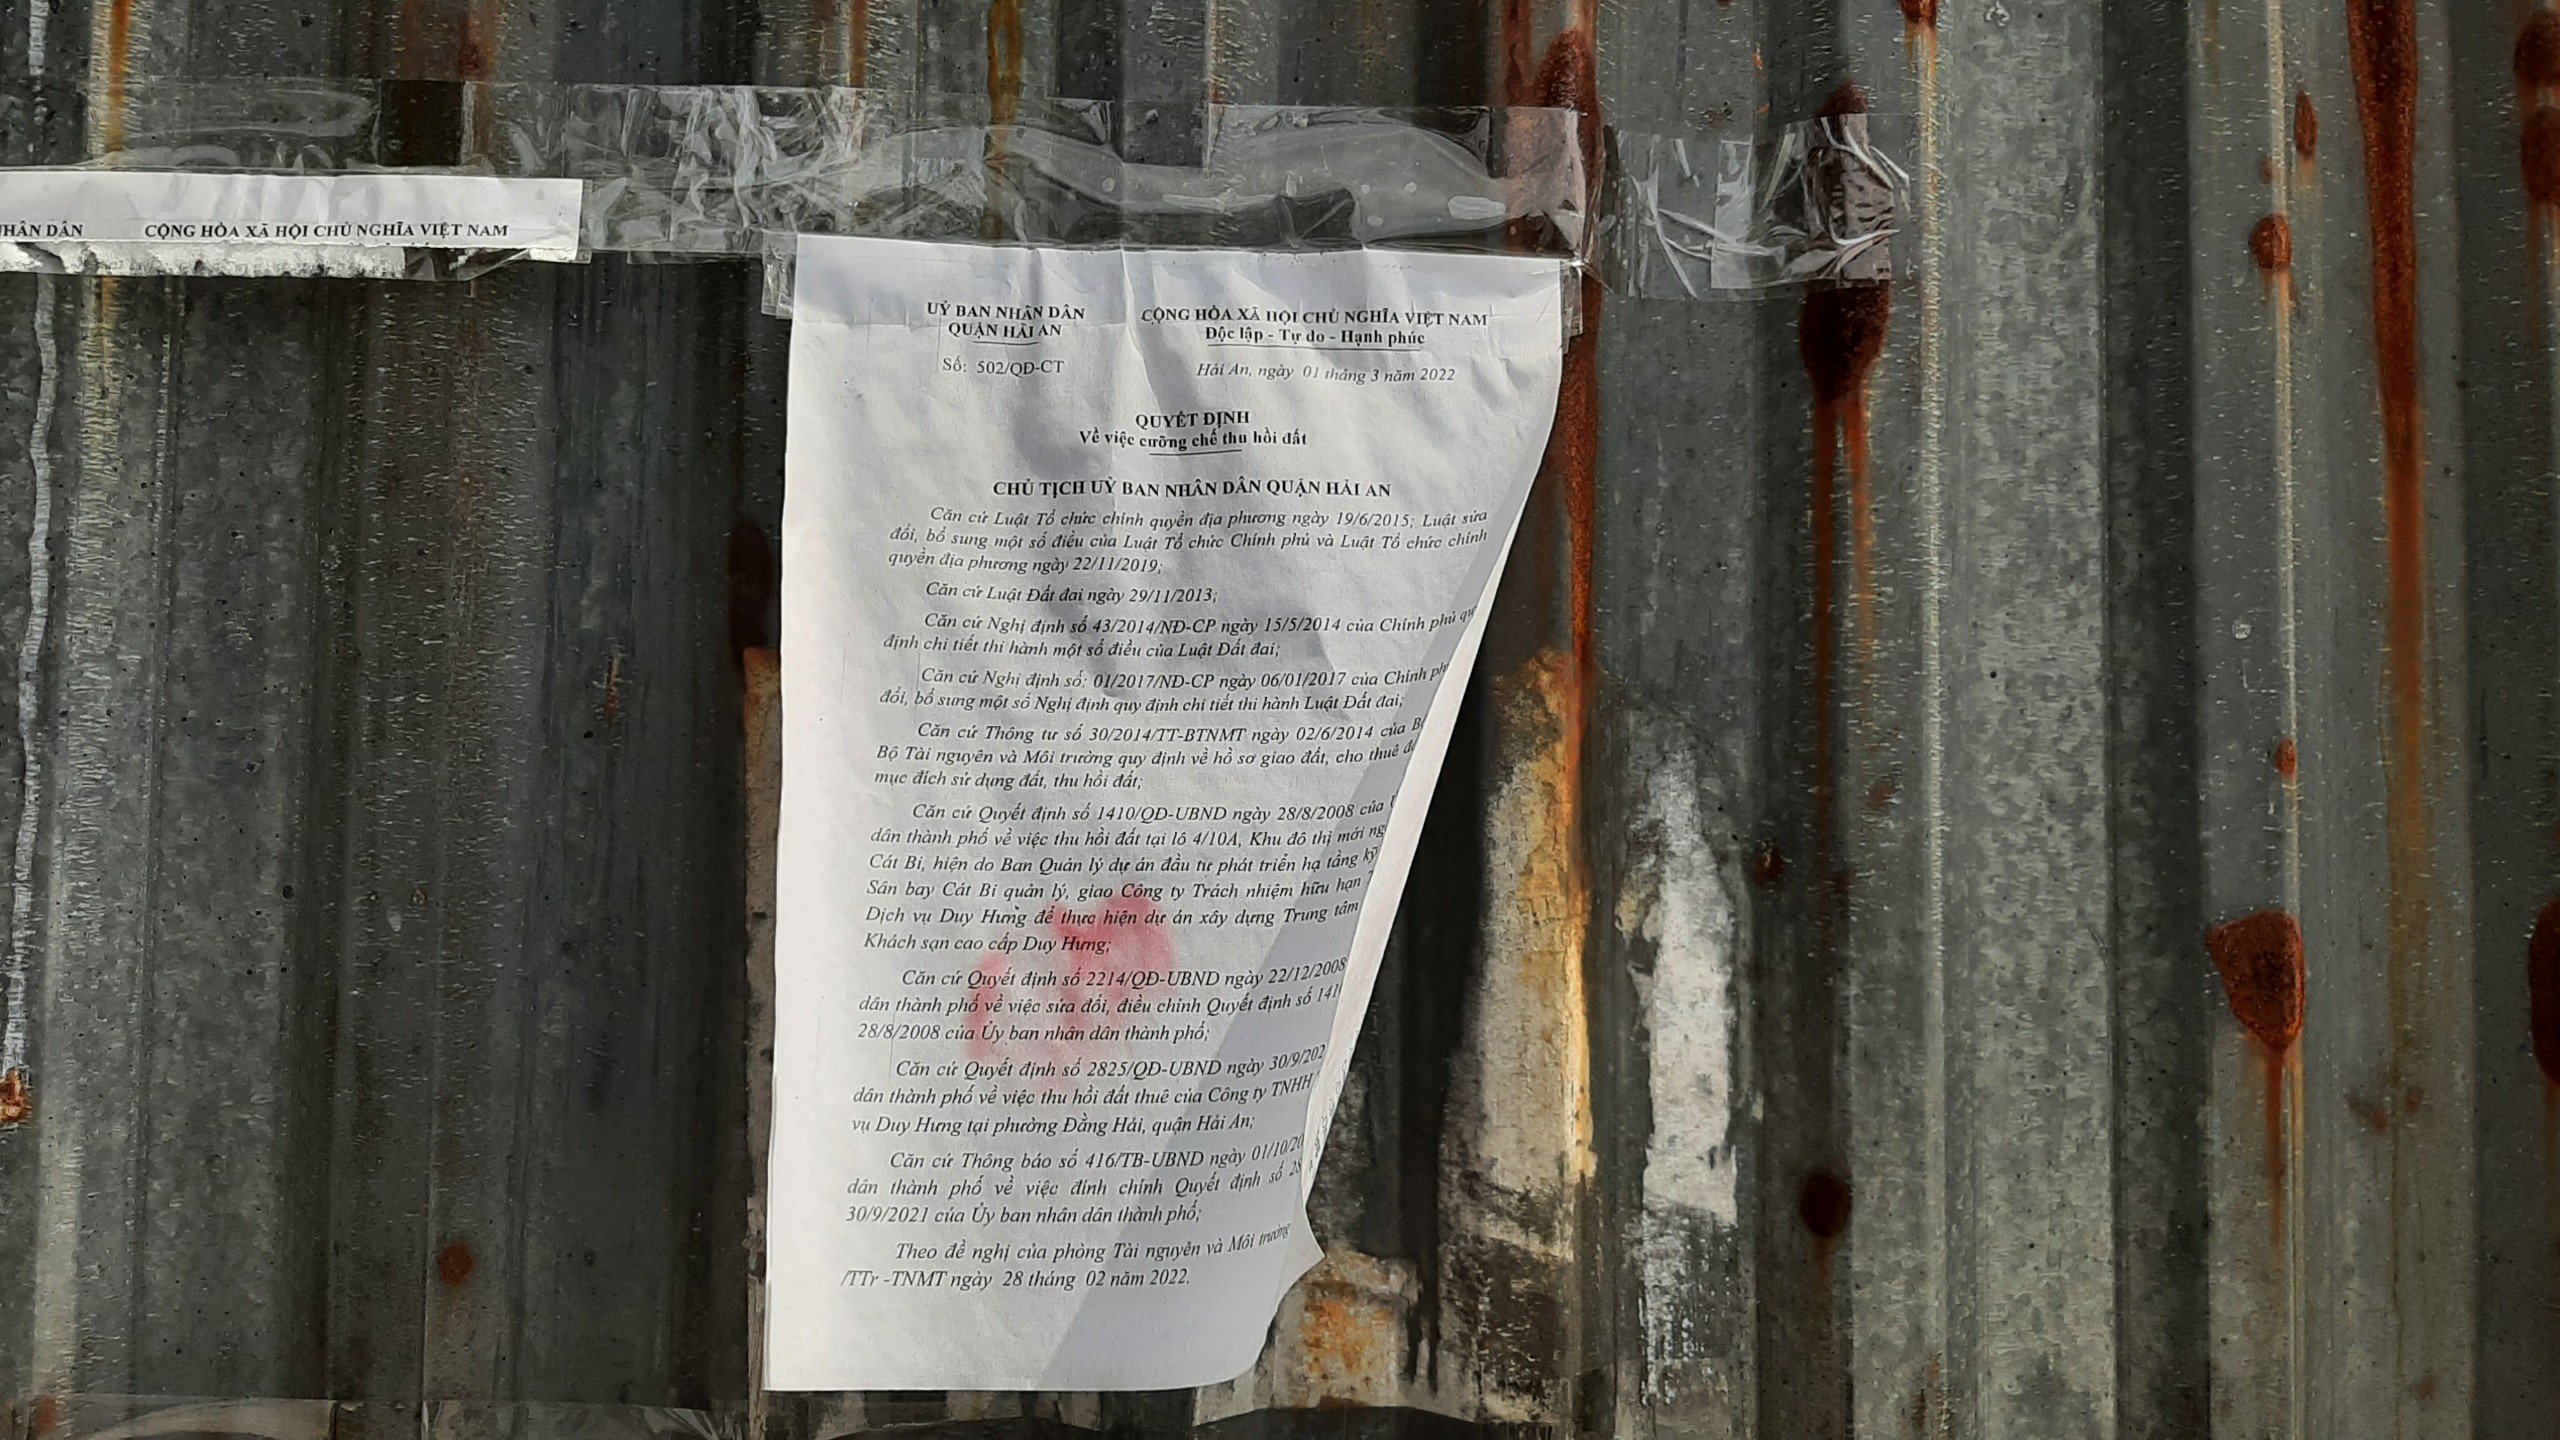 HÂN DÂN CỘNG HÒA XÃ HỘI CHỦ NGHĨA VIỆT NAM
UỶ BAN NHÂN DÂN
QUẬN HẢI AN
Số: 502/QĐ-CT
CỘNG HÒA XÃ HỘI CHỦ NGHĨA VIỆT NAM
Độc lập - Tự do - Hạnh phúc
Hải An, ngày 01 tháng 3 năm 2022
QUYẾT ĐỊNH
Về việc cưỡng chế thu hồi đất
CHỦ TỊCH UỶ BAN NHÂN DÂN QUẬN HẢI AN
Căn cứ Luật Tổ chức chính quyền địa phương ngày 19/6/2015; Luật sửa
đổi, bổ sung một số điều của Luật Tổ chức Chính phủ và Luật Tổ chức chính
quyền địa phương ngày 22/11/2019;
Căn cứ Luật Đất đai ngày 29/11/2013;
Căn cứ Nghị định số 43/2014/NĐ-CP ngày 15/5/2014 của Chính phủ qu
định chi tiết thi hành một số điều của Luật Đất đai;
Căn cứ Nghị định số: 01/2017/NĐ-CP ngày 06/01/2017 của Chính ph
đổi, bổ sung một số Nghị định quy định chi tiết thi hành Luật Đất đai;
Căn cứ Thông tư số 30/2014/TT-BTNMT ngày 02/6/2014 của B
Bộ Tài nguyên và Môi trường quy định về hồ sơ giao đất, cho thuê đ
mục đích sử dụng đất, thu hồi đất;
Căn cứ Quyết định số 1410/QĐ-UBND ngày 28/8/2008 của
dân thành phố về việc thu hồi đất tại lô 4/10A, Khu đô thị mới ng
Cát Bi, hiện do Ban Quản lý dự án đầu tư phát triển hạ tầng kỹ
Sân bay Cát Bi quản lý, giao Công ty Trách nhiệm hữu hạn
Dịch vụ Duy Hưng để thực hiện dự án xây dựng Trung tâm
Khách sạn cao cấp Duy Hưng;
Căn cứ Quyết định số 2214/QĐ-UBND ngày 22/12/2008
dân thành phố về việc sửa đổi, điều chỉnh Quyết định số 141
28/8/2008 của Ủy ban nhân dân thành phố;
Căn cứ Quyết định số 2825/QĐ-UBND ngày 30/9/202
dân thành phố về việc thu hồi đất thuê của Công ty TNHH
vụ Duy Hưng tại phường Đằng Hải, quận Hải An;
Căn cứ Thông báo số 416/TB-UBND ngày 01/10/20
dân thành phố về việc đính chính Quyết định số 28
30/9/2021 của Ủy ban nhân dân thành phố;
Theo đề nghị của phòng Tài nguyên và Môi trường
/TTr -TNMT ngày 28 tháng 02 năm 2022.